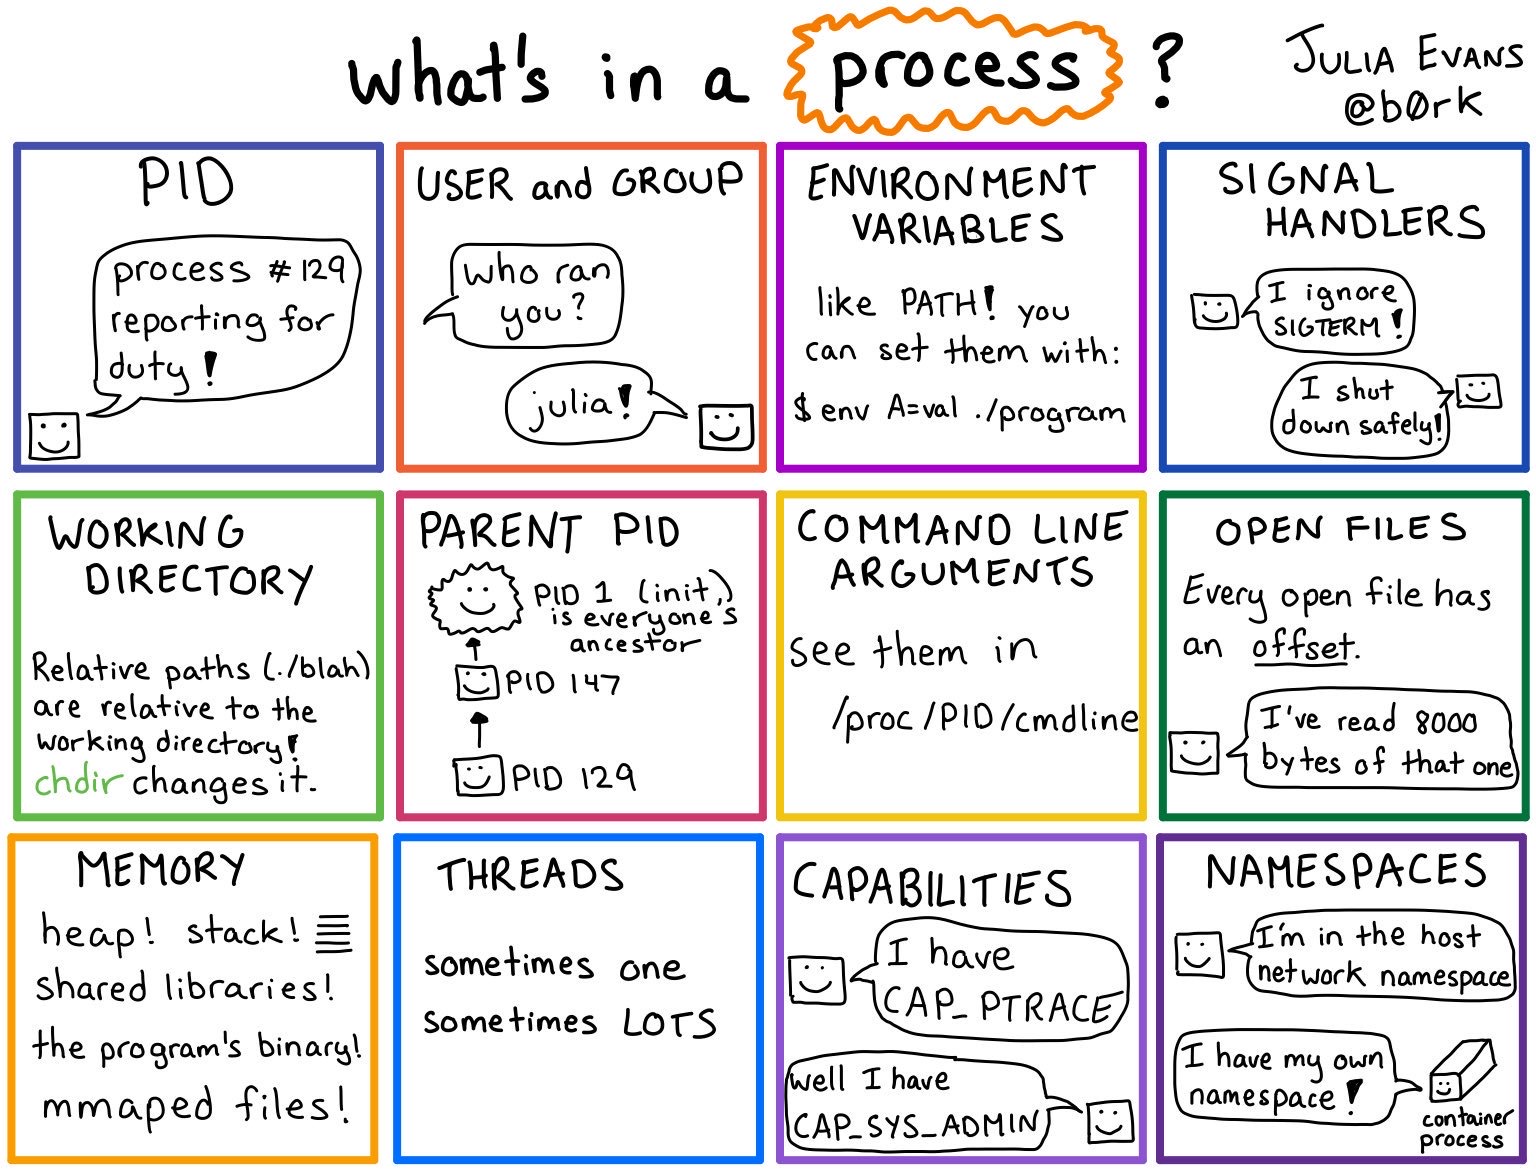 what's in a process?
JULIA EVANS
@b0rk
PID
process #129
reporting for
duty!
USER and GROUP
who ran
you?
julia!
ENVIRONMENT
VARIABLES
like PATH! you
can set them with:
$ env A=val ./program
SIGNAL
HANDLERS
I ignore
SIGTERM!
I shut
down safely!
WORKING
DIRECTORY
Relative paths (./blah)
are relative to the
working directory!
chdir changes it.
PARENT PID
PID 1 (init,)
is everyone's
ancestor
PID 147
PID 129
COMMAND LINE
ARGUMENTS
see them in
/proc/PID/cmdline
OPEN FILES
Every open file has
an offset.
I've read 8000
bytes of that one
MEMORY
heap! stack!
shared libraries!
the program's binary!
mmaped files!
THREADS
sometimes one
sometimes LOTS
CAPABILITIES
I have
CAP_PTRACE
well I have
CAP_SYS_ADMIN
NAMESPACES
I'm in the host
network namespace
I have my own
namespace!
container
process